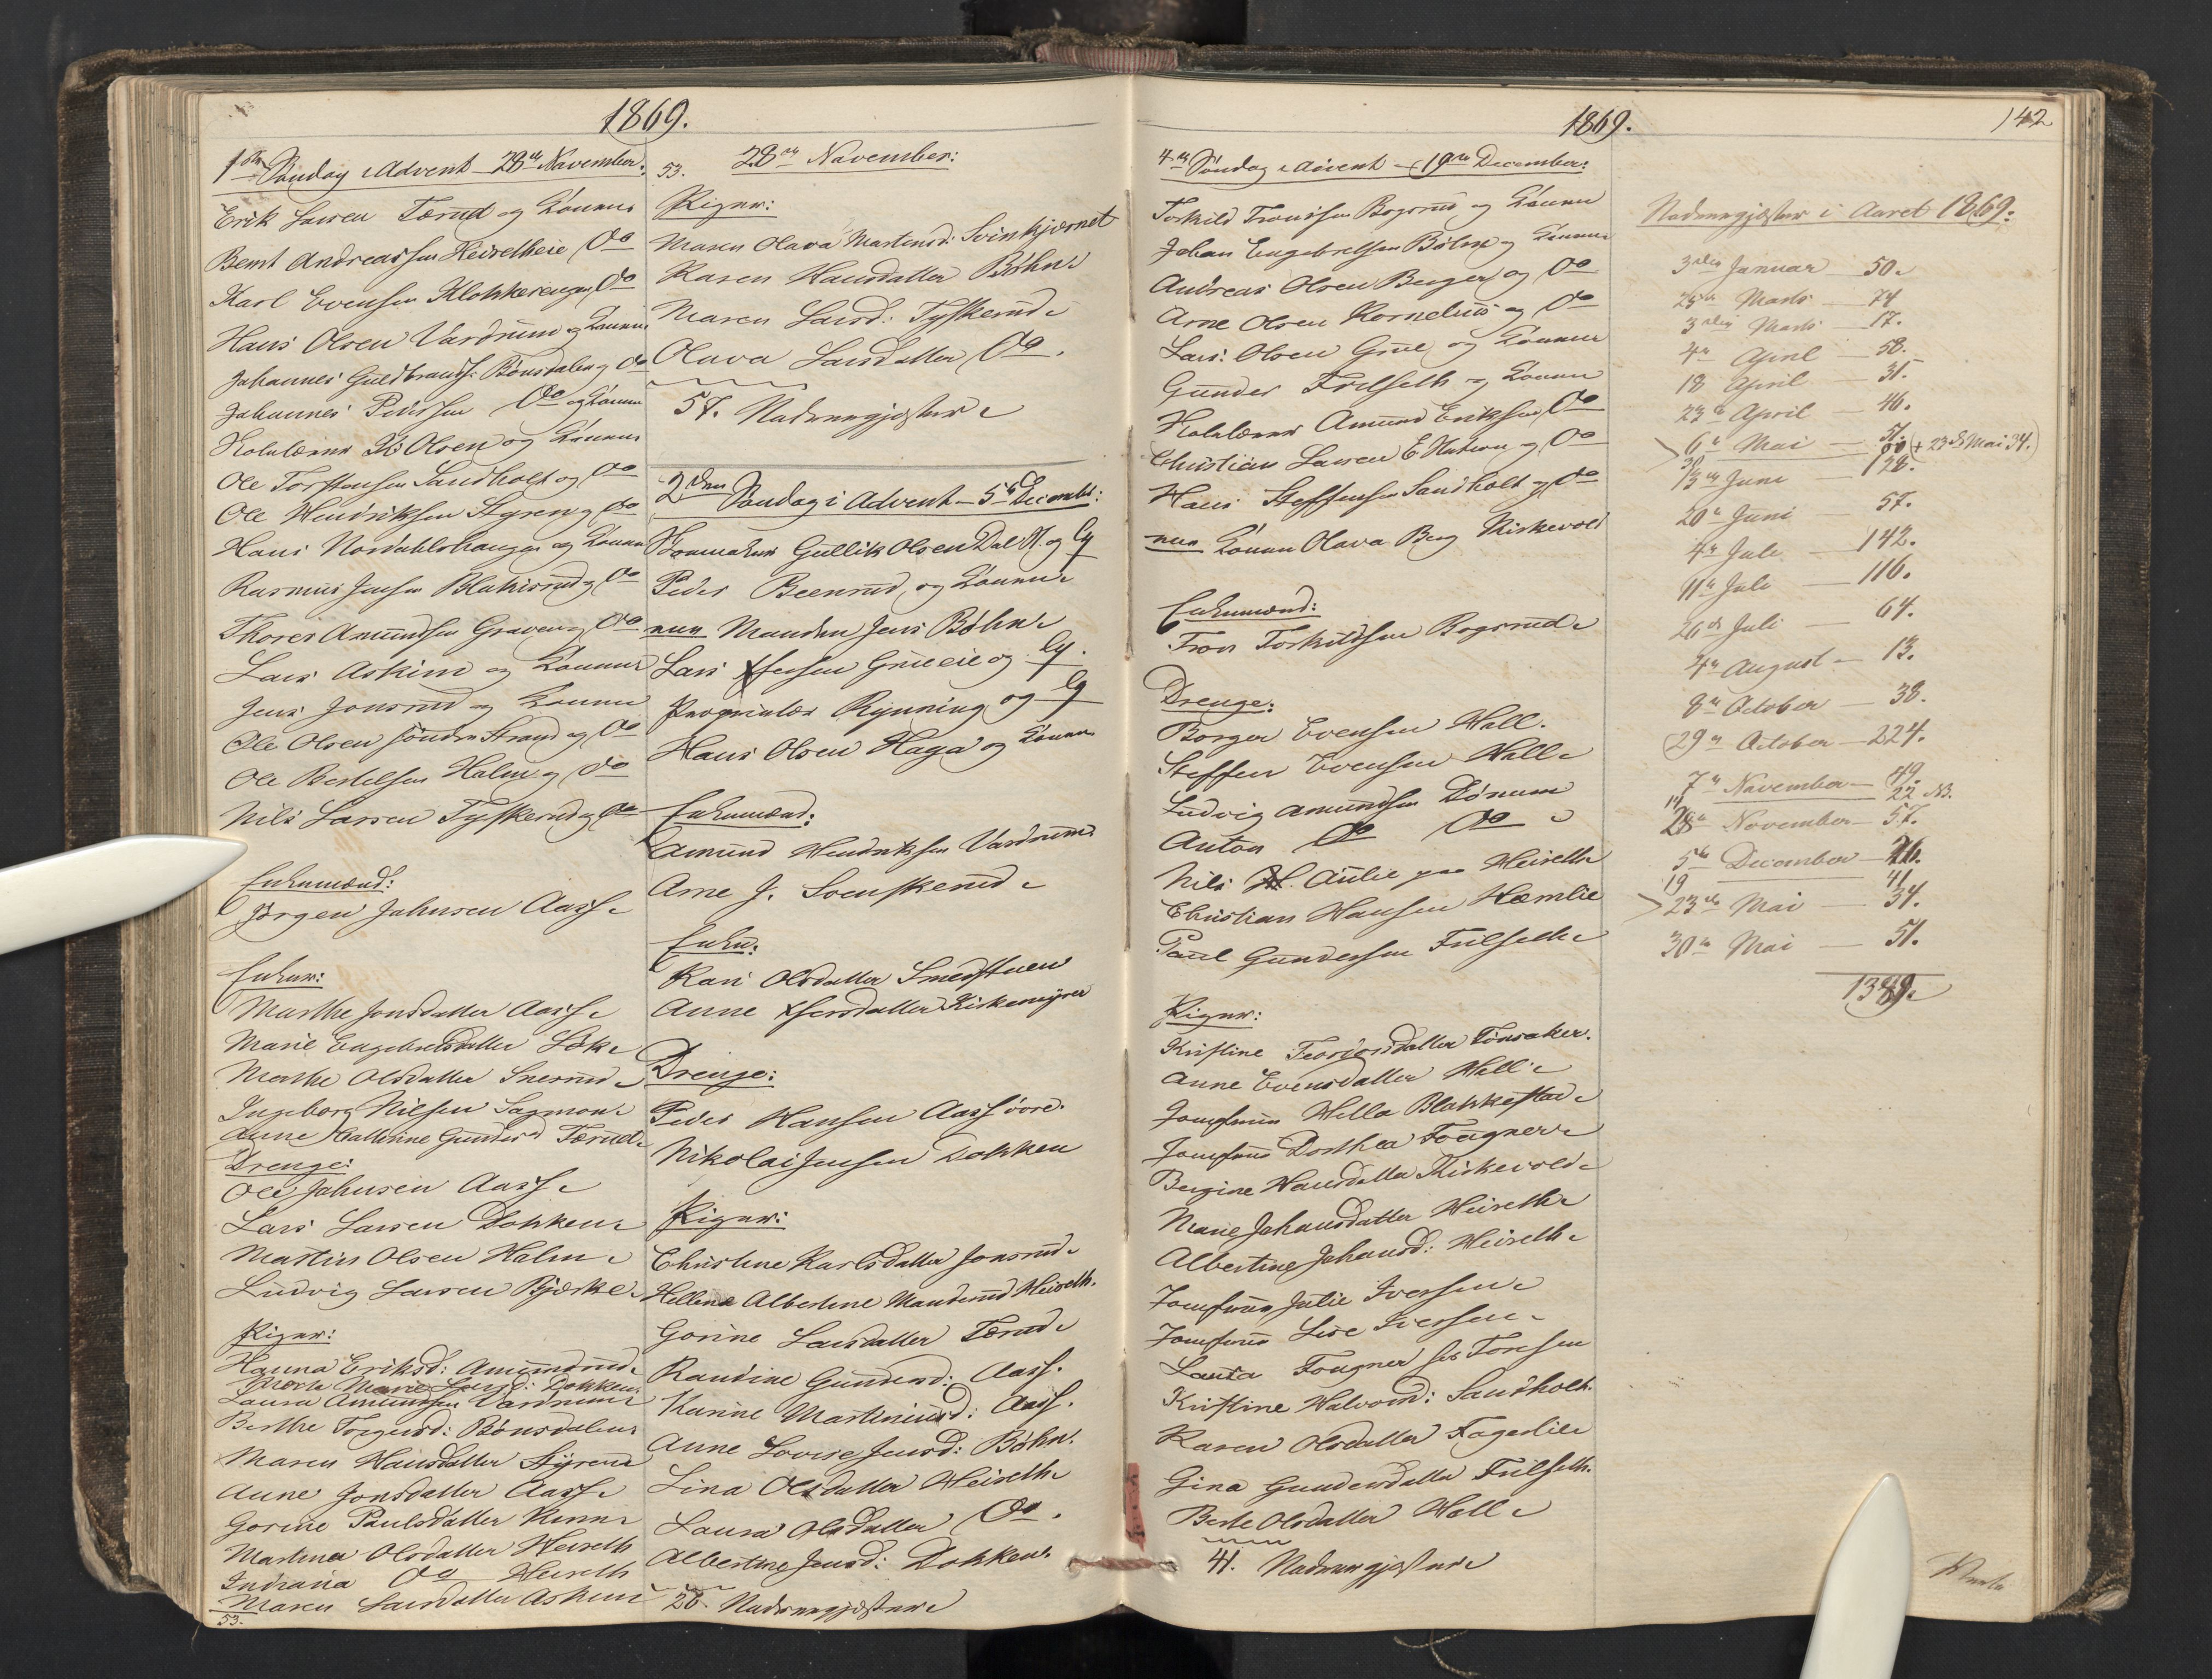 1869.
1ste Søndag i Advent – 28de November:
Erik Larsen Tærud og Konen
Bernt Andreassen Heiretheie Do
Karl Evensen Klokkerengen Do
Hans Olsen Vardrum og Konen
Johannes Guldbrands: Bønsdalen og Do
Johannes Pedersen Do og Konen
Olsen og Konen
Ole Torstensen Sandholt og Do
Ole Hendriksen Styren og Do
Hans Nordahlshaugen og Konen
Rasmus Jensen og Do
Thores Amundsen Graven og Do
Lars Askim og Konen
Jens Jonsrud og Konen
Ole Olsen søndre Strand og Do
Ole Bertelsen Holm og Do
Nils Larsen Tyskerud og Do
Enkemænd:
Jørgen Johnsen Aass
Enker:
Marthe Jonsdatter Aass
Marie Engebretsdatter Løk
Marthe Olsdatter Snerud
Ingeborg Nilsen Sagmoen
Anne Cathrine Gundersd Tærud
Drenge:
Ole Johnsen Aass
Lars Larsen Dokken
Martin Olsen Holm
Ludvig Larsen Bjerke
Piger:
Hanna Eriksd: Amundrud
Marthe Marie Larsd: Dokken
Laura Amundsen Vardrum
Berthe Torgersd: Bønsdalen
Maren Hansdatter Styren
Anne Jonsdatter Aass
Gorine Paulsdatter
Martinea Olsdatter Heireth
Indiana Do Heireth
Maren Larsdatter Askim
53.
53. 28de November:
Piger:
Maren Olava Martinsd: Svinkjernet
Karen Hansdatter Bøhn
Maren Larsd: Tyskerud
Olava Larsdatter Do.
57. Nadvergjæster
2den Søndag i Advent – 5te Decembr:
Gullik Olsen Dal og
Peder Beenrud, og Konen
nun Manden Jens Bøhn
Lars Jensen Grueeie og
Proprietær Rynning og
Hans Olsen Haga og Konen
Enkemænd:
Amund Hendriksen Vardrum
Arne J. Svenskerud
Enker:
Kari Olsdatter Smedstuen
Anne Iversdatter Kirkemyren
Drenge:
Peder Hansen Aass øvre.
Nikolai Jensen Dokken
Piger:
Christine Karlsdatter Jonsrud
Hellene Albertine Manderud Heireth.
Gorine Larsdatter Tærud
Randine Gundersd: Aass.
Karine Martiniusd: Aass.
Anne Lovise Jensd: Bøhn.
Lina Olsdatter Heireth
Laura Olsdatter Do.
Albertine Jensd: Dokken
26. Nadvergjæster
1869.
4de Søndag i Advent – (19de December:
Torkild Tronsen Bogsrud og Konen
Johan Engebretsen Bøhn og Konen
Andreas Olsen Berger og Do
Arne Olsen Kornelius og Do
Lars Olsen Grue og Konen
Gunder Frilseth og Konen
Amund Eriksen Do
Christian Larsen og Do
Hans Steffensen Sandholt og Do
nun Konen Olava Berg Kirkevold
Enkemænd:
Tron Torkildsen Bogsrud
Drenge:
Borger Evensen Hell.
Steffen Evensen Hell
Ludvig Amundsen Dønum
Anton Do Do
Nils H. Aulie paa Heireth
Christian Hansen Hæmlie
Paul Gundersen Frilseth
Piger:
Kristine Tønsaker.
Anne Evensdatter Hell
Jomfrue Hella Blakkestad
Jomfrue Dorthea Fougner
Bergine Hansdatter Kirkevold
Marie Johansdatter Heireth
Albertine Johansd: Heireth
Jomfrue Julie Iversen
Jomfrue Lise Iversen
Laura Fougner Torsen
Kristine Halvorsd: Sandholt.
Karen Olsdatter Fagerlie
Gina Gundersdatter Frilseth.
Berte Olsdatter Hell
41. Nadvergjæster
142
Nadvergjæster i Aaret 1869:
3die Januar – 50.
25de Marts – 74
3die Marts – 17.
4de April – 58.
18 April – 31.
23de April – 46.
6te Mai – 51. (+ 23de Mai 34.)
30
13de Juni – 128.
20de Juni – 57.
4de Juli – 142.
11te Juli – 116.
26de Juli – 64.
4de August – 13.
8de October – 38.
29de October – 224.
7de November – 49.
14 22 NB.
28de November – 57.
5te December – 26.
19 41
23de Mai – 34.
30te Mai – 51.
1389.